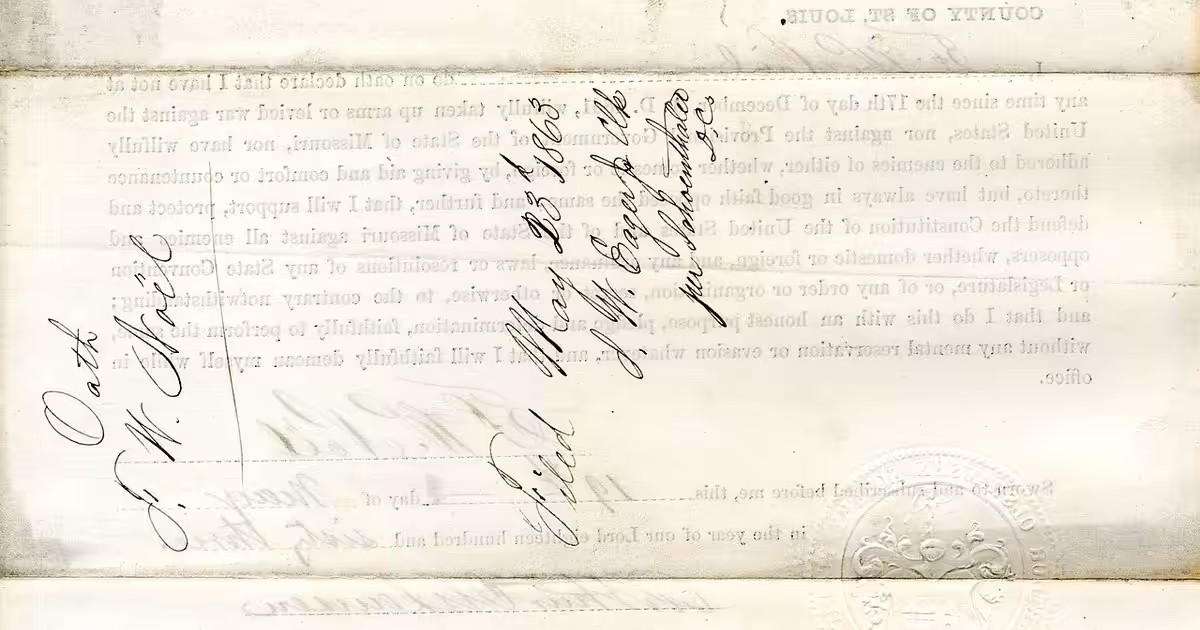 Oath
F. W. Noël
Filed May 23d 1863
per Schoenthaler
D.C.
COUNTY OF ST. LOUIS.
I,
do on oath declare that I have not at
any time since the 17th day of December, D. 1, wilfully taken up arms or levied war against the
United States, nor against the Government of the State of Missouri, nor have wilfully
adhered to the enemies of either, whether or, by giving aid and comfort or countenance
thereto, but have always in good faith the same and further, that I will support, protect and
defend the Constitution of the United of the State of Missouri against all enemies and
opposers, whether domestic or foreign, any laws or resolutions of any State Convention
or Legislature, or of any order or organization, otherwise, to the contrary notwithstanding;
and that I do this with an honest purpose, pledge and determination, faithfully to perform the same,
without any mental reservation or evasion whatever, and that I will faithfully demean myself while in
office.
F. W. Noël
Sworn to and subscribed before me, this 19 day of May
in the year of our Lord eighteen hundred and sixty three